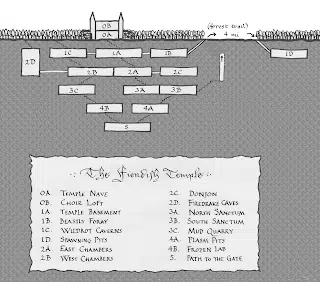 (forest trail)
4 mi
0B
0A
1C
1A
1B
1D
2D
2B
2A
2C
3C
3A
3B
4B
4A
5
The Fiendish Temple
0A Temple Nave
0B. Choir Loft
1A Temple Basement
1B. Beastly Foray
1C Wildrot Caverns
1D. Spawning Pits
2A East Chambers
2B West Chambers
2C. Donjon
2D. Firedrake Caves
3A. North Sanctum
3B. South Sanctum
3C. Mud Quarry
4A Plasm Pits
4B. Frozen Lab
5. Path to the Gate